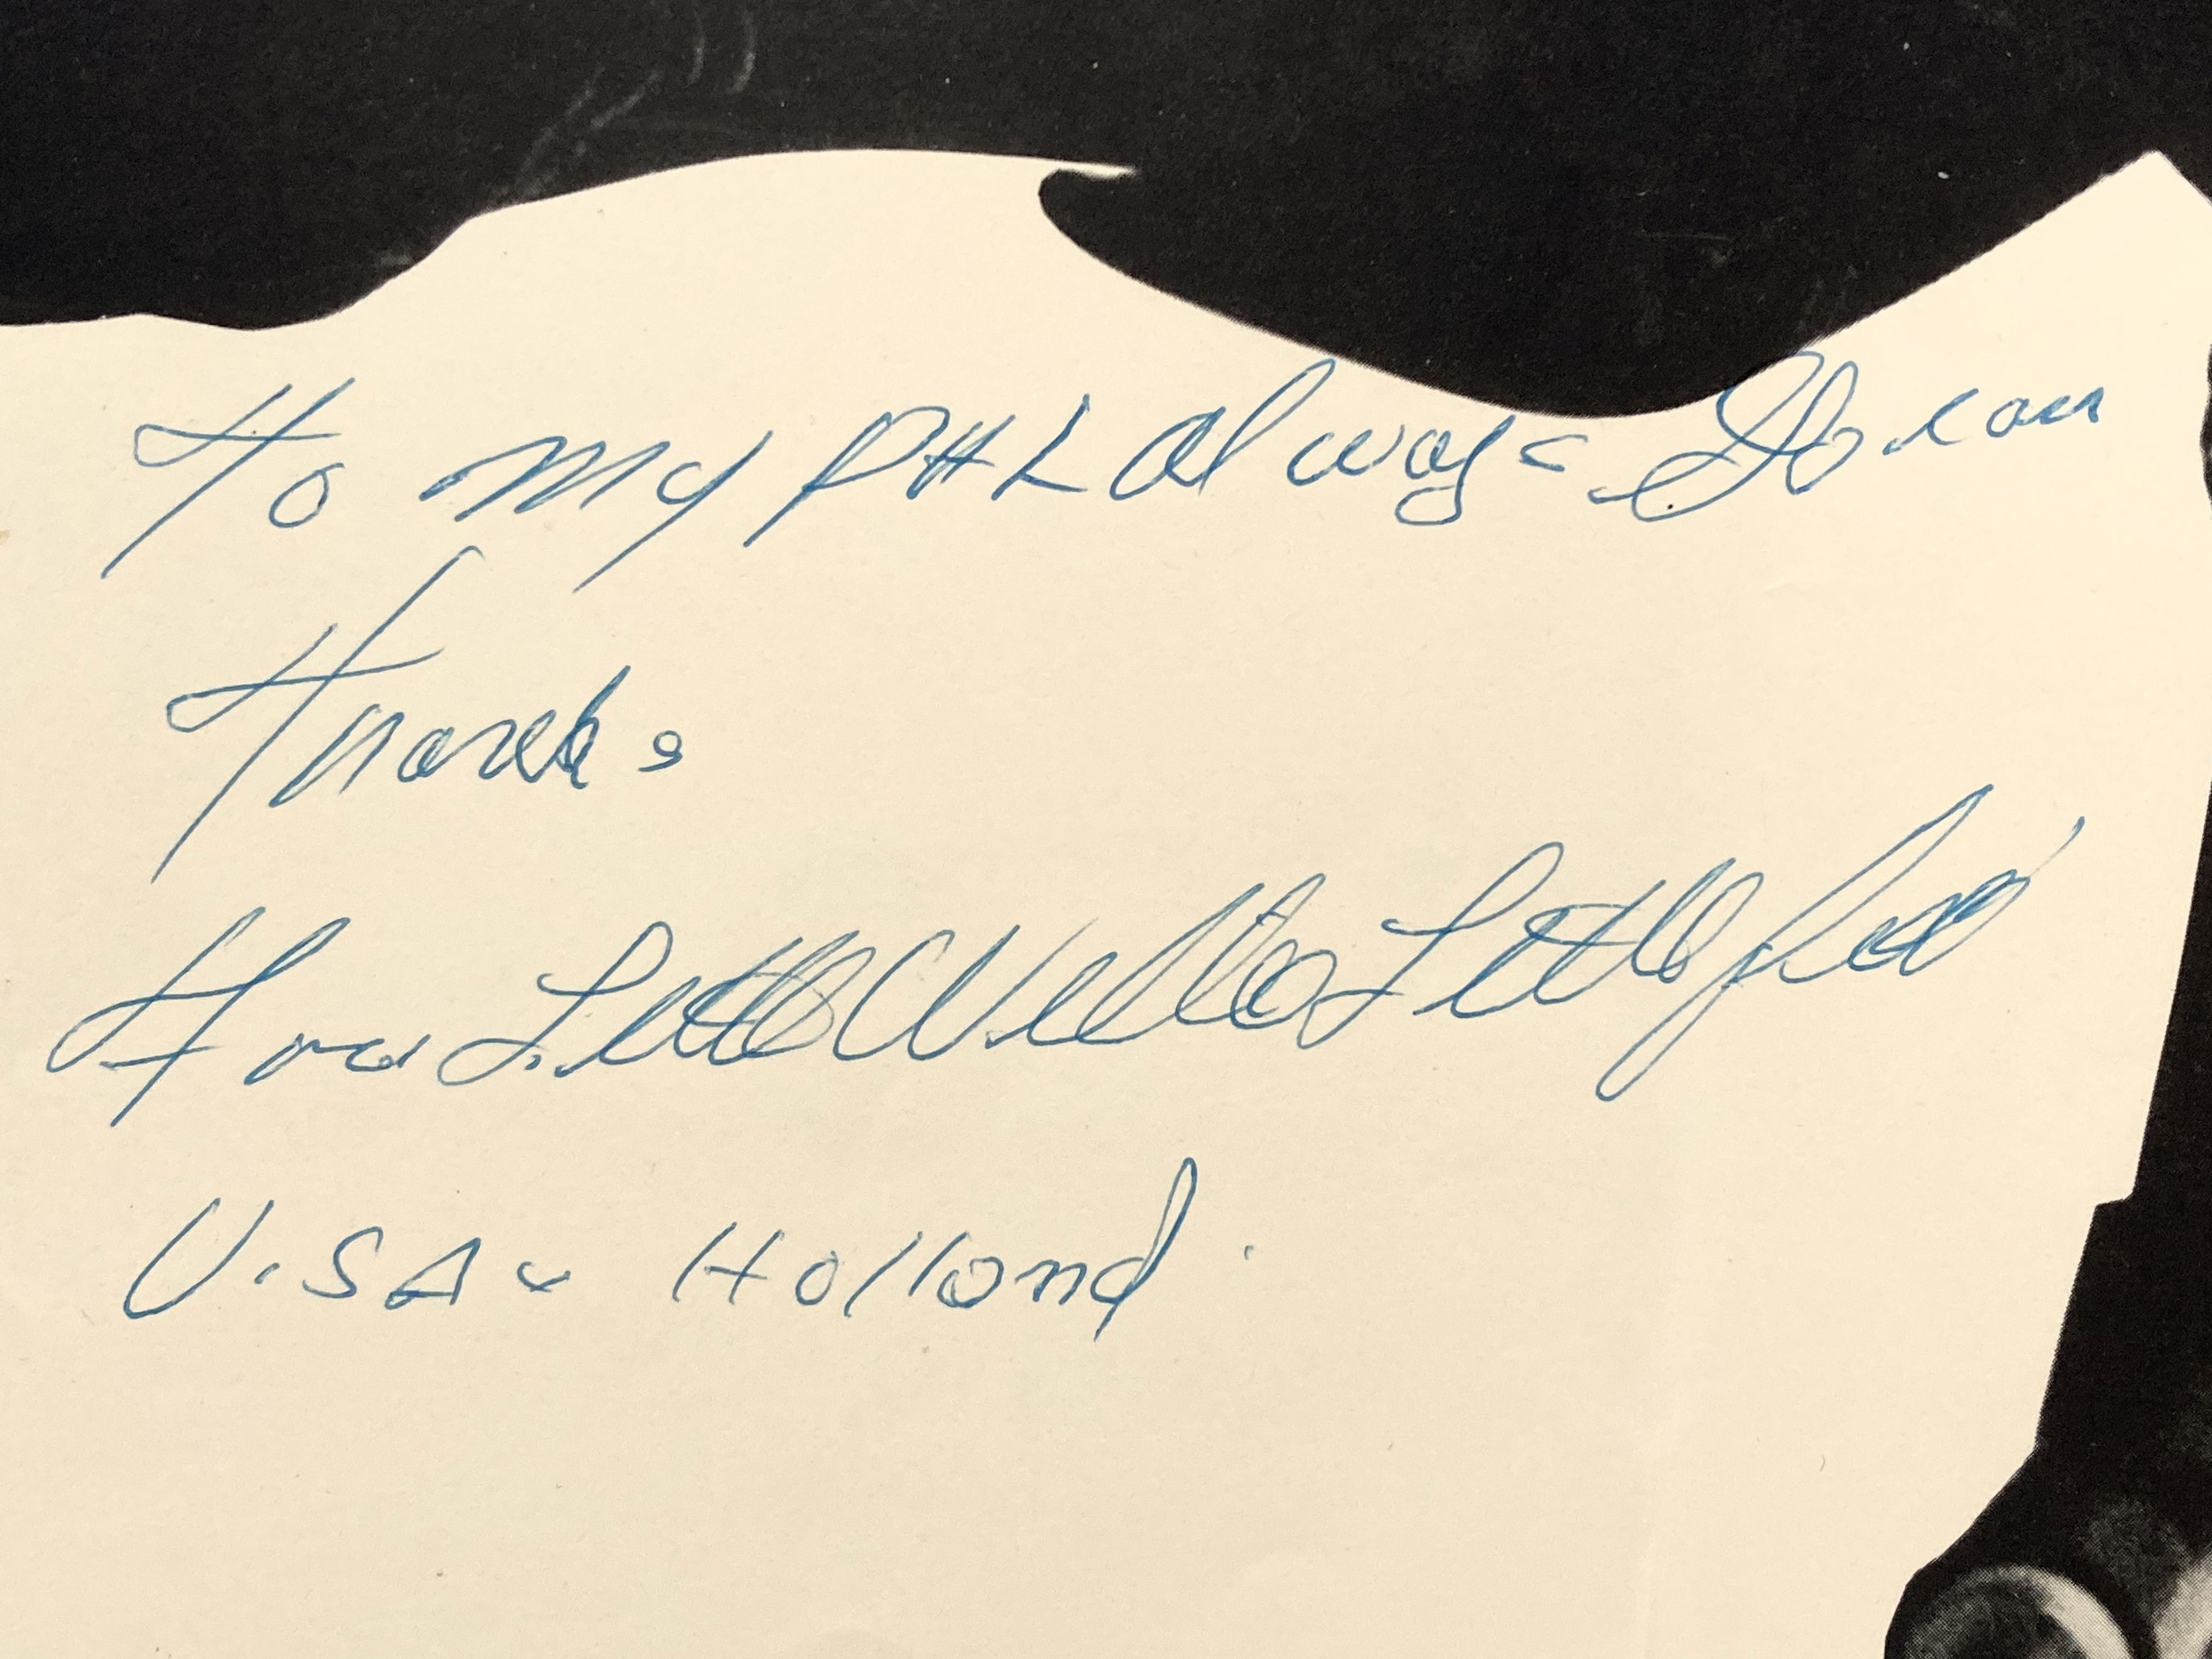 To my PAL Always Goran
Thanks
From Little Willie Littlefield
U.SA - Holland.